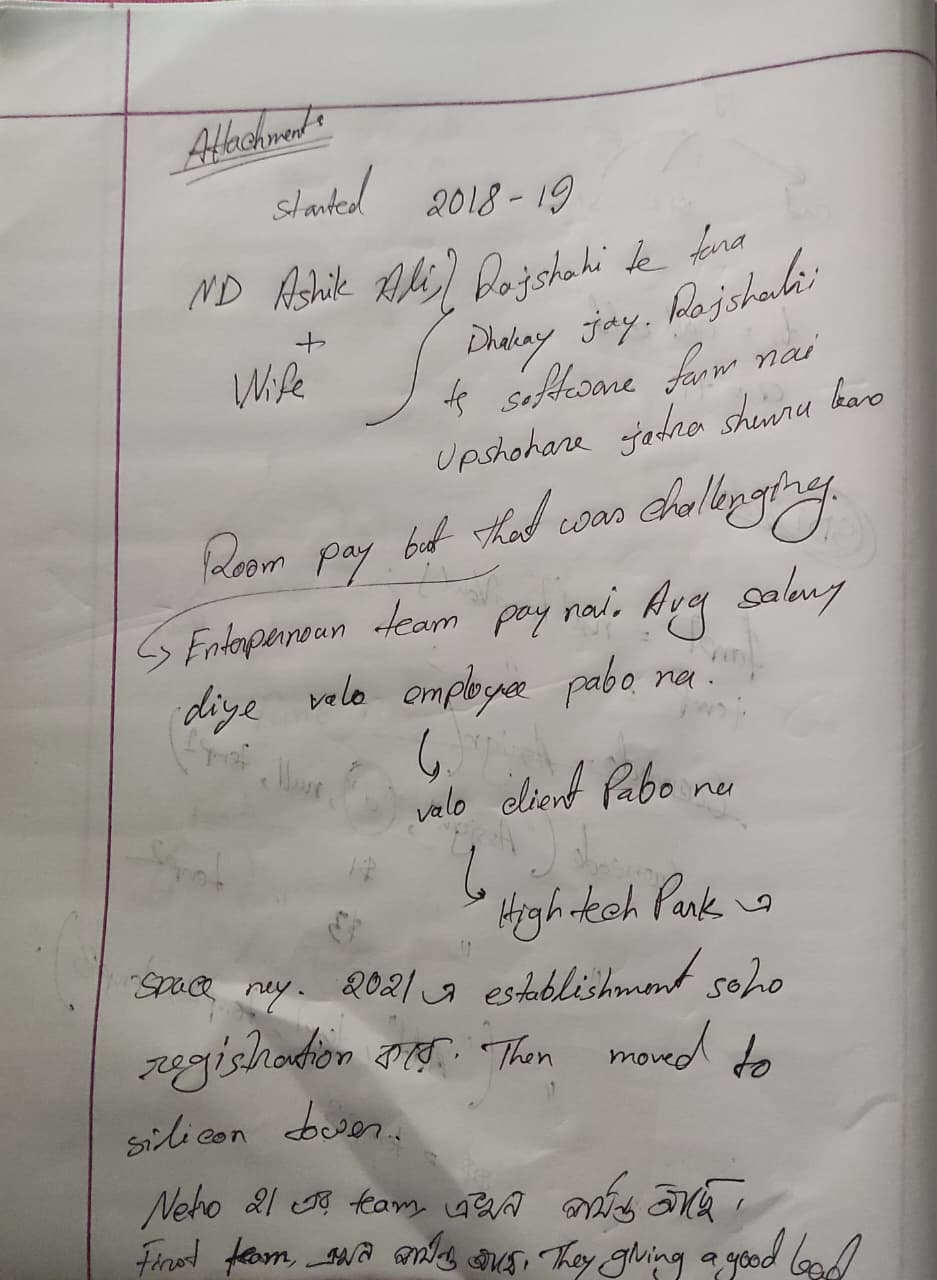 Attachment:
started 2018-19
MD Ashik Ali, } Rajshahi te tara
+
Wife
Dhakay jay. Rajshahi
te software farm nai
Upshohore jatra shuru kare
Room pay but that was challenging.
↳ team pay nai. Avg salary
diye valo employee pabo na.
↳
valo client Pabo na
↳ High tech Park এ
space ney. 2021 এ establishment soho
registration করে. Then moved to
silicon tower.
21 এর team এখন পর্যন্ত আছে।
First team, এখন পর্যন্ত They giving a good lead